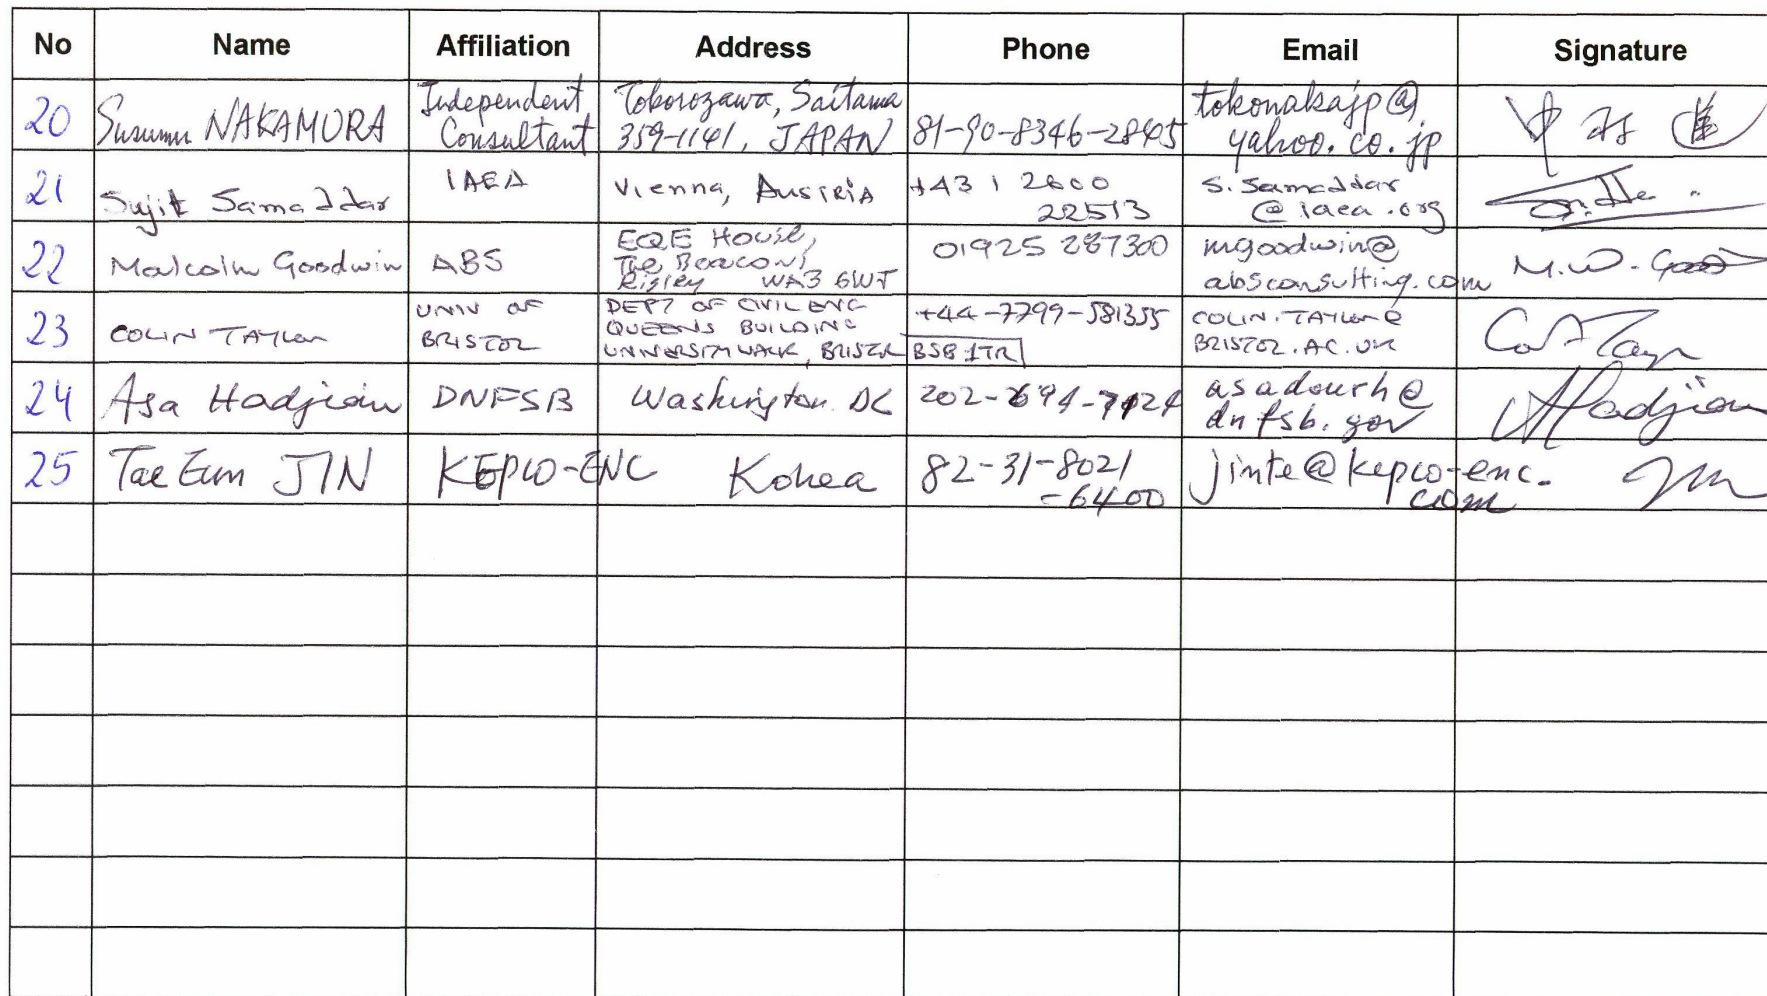 No Name Affiliation Address Phone Email Signature
20 Susumu NAKAMURA Independent Consultant Tokorozawa, Saitama 359-1141, JAPAN 81-90-8346-2845 tokonakajp@yahoo.co.jp 中村 進
21 Sujit Samaddar IAEA Vienna, AUSTRIA +43 1 2600 22513 S.Samaddar@iaea.org
22 Malcolm Goodwin ABS EQE House, The Beacons Risley WA3 6WT 01925 287300 mgoodwin@absconsulting.com M.W.
23 COLIN TAYLOR UNIV OF BRISTOL DEPT OF CIVIL ENG QUEENS BUILDING UNIVERSITY WALK, BRISTOL BS8 1TR +44-7799-581355 COLIN.TAYLOR@BRISTOL.AC.UK
24 Asa Hadjian DNFSB Washington DC 202-694-7124 asadourh@dnfsb.gov AHadjian
25 Tae Eun JIN KEPCO-ENC Korea 82-31-8021-6400 jinte@kepco-enc.com